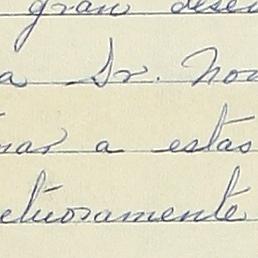 gran dese
a Sr. Nov
nar a estas
ctuosamente